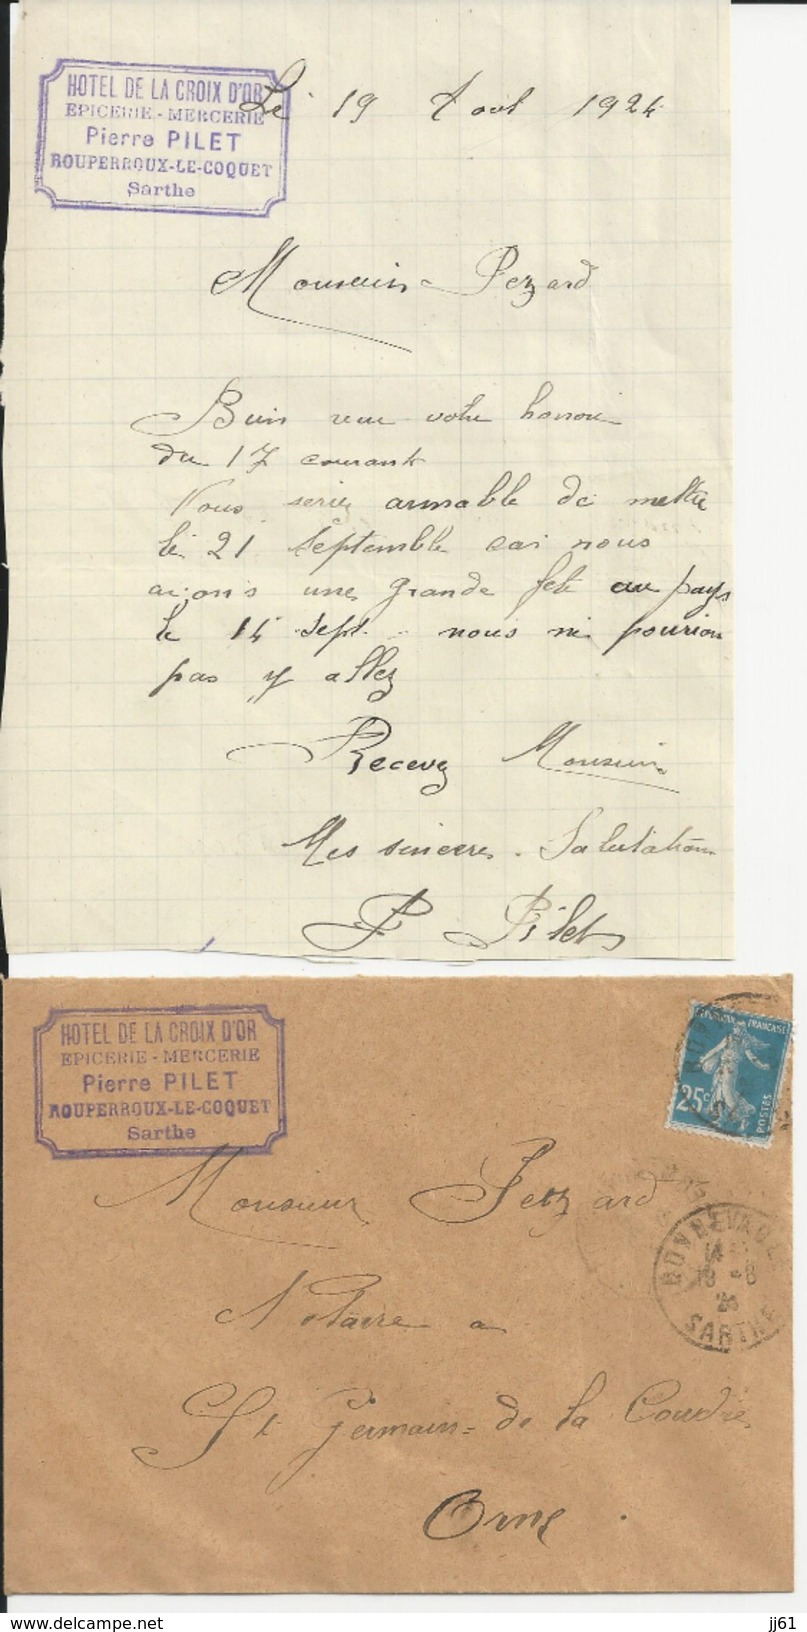 HOTEL DE LA CROIX D'OR
EPICERIE - MERCERIE
Pierre PILET
ROUPERROUX-LE-COQUET
Sarthe
Le 19 Aout 1924
Monsieur Pezard
Bien reçu votre honoré
du 17 courant
Vous serier aimable de mettre
le 21 Septemble car nous
avons une grande fete au pays
le 14 Sept. nous ne pourion
pas y allez
Recevez Monsieur
Mes sinceres Salutations
P Pilet
HOTEL DE LA CROIX D'OR
EPICERIE - MERCERIE
Pierre PILET
ROUPERROUX-LE-COQUET
Sarthe
REPUBLIQUE FRANCAISE
25c
POSTES
BONNETABLE
SARTHE
Monsieur Pezard
Notaire a
St Germain = de la Coudre
Orne.
delcampe.net
jj61